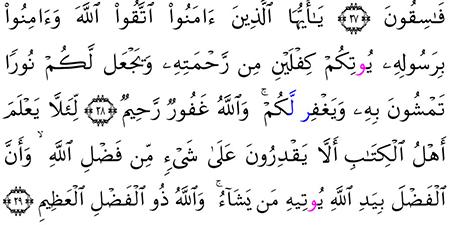 فَـٰسِقُونَ ٢٧ يَـٰٓأَيُّهَا ٱلَّذِينَ ءَامَنُوا۟ ٱتَّقُوا۟ ٱللَّهَ وَءَامِنُوا۟
بِرَسُولِهِۦ يُوتِكُمْ كِفْلَيْنِ مِن رَّحْمَتِهِۦ وَيَجْعَل لَّكُمْ نُورًا
تَمْشُونَ بِهِۦ وَيَغْفِر لَّكُمْ ۚ وَٱللَّهُ غَفُورٌ رَّحِيمٌ ٢٨ لِّئَلَّا يَعْلَمَ
أَهْلُ ٱلْكِتَـٰبِ أَلَّا يَقْدِرُونَ عَلَىٰ شَىْءٍ مِّن فَضْلِ ٱللَّهِ ۙ وَأَنَّ
ٱلْفَضْلَ بِيَدِ ٱللَّهِ يُوتِيهِ مَن يَشَآءُ ۚ وَٱللَّهُ ذُو ٱلْفَضْلِ ٱلْعَظِيمِ ٢٩